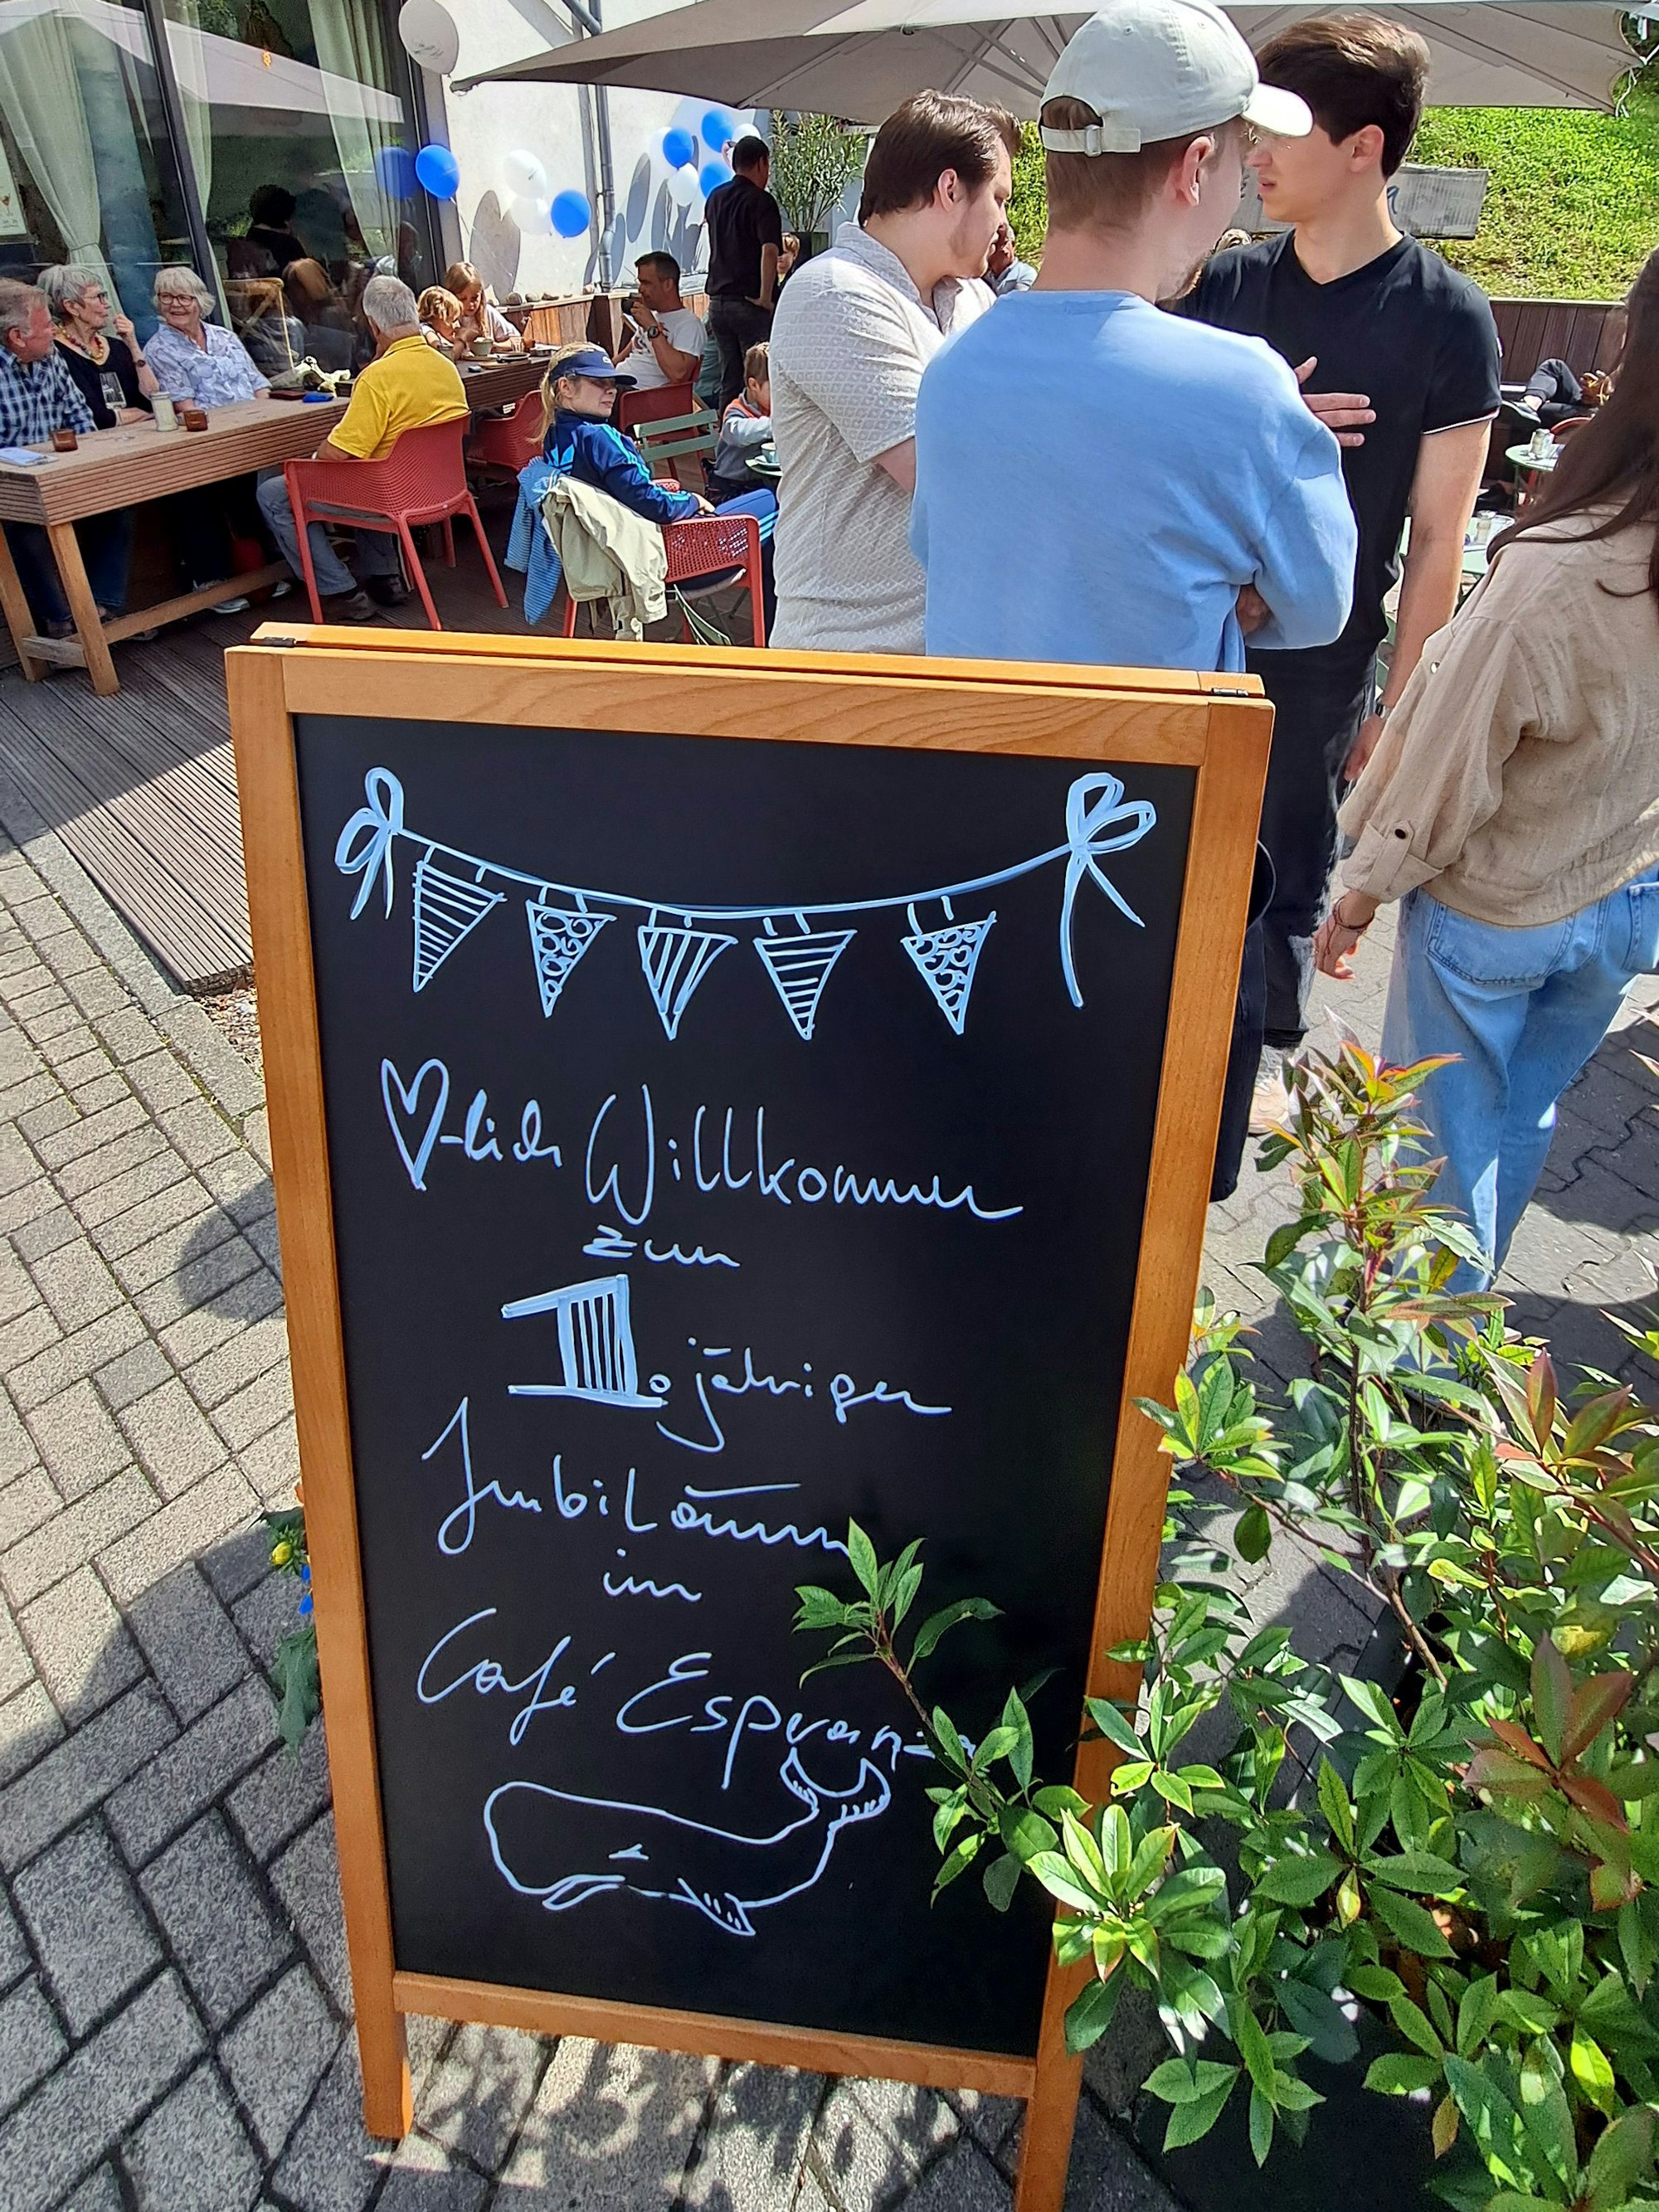 ♥-lich Willkommen
zum
1. jähriger
Jubiläum
im
Café Esperanza